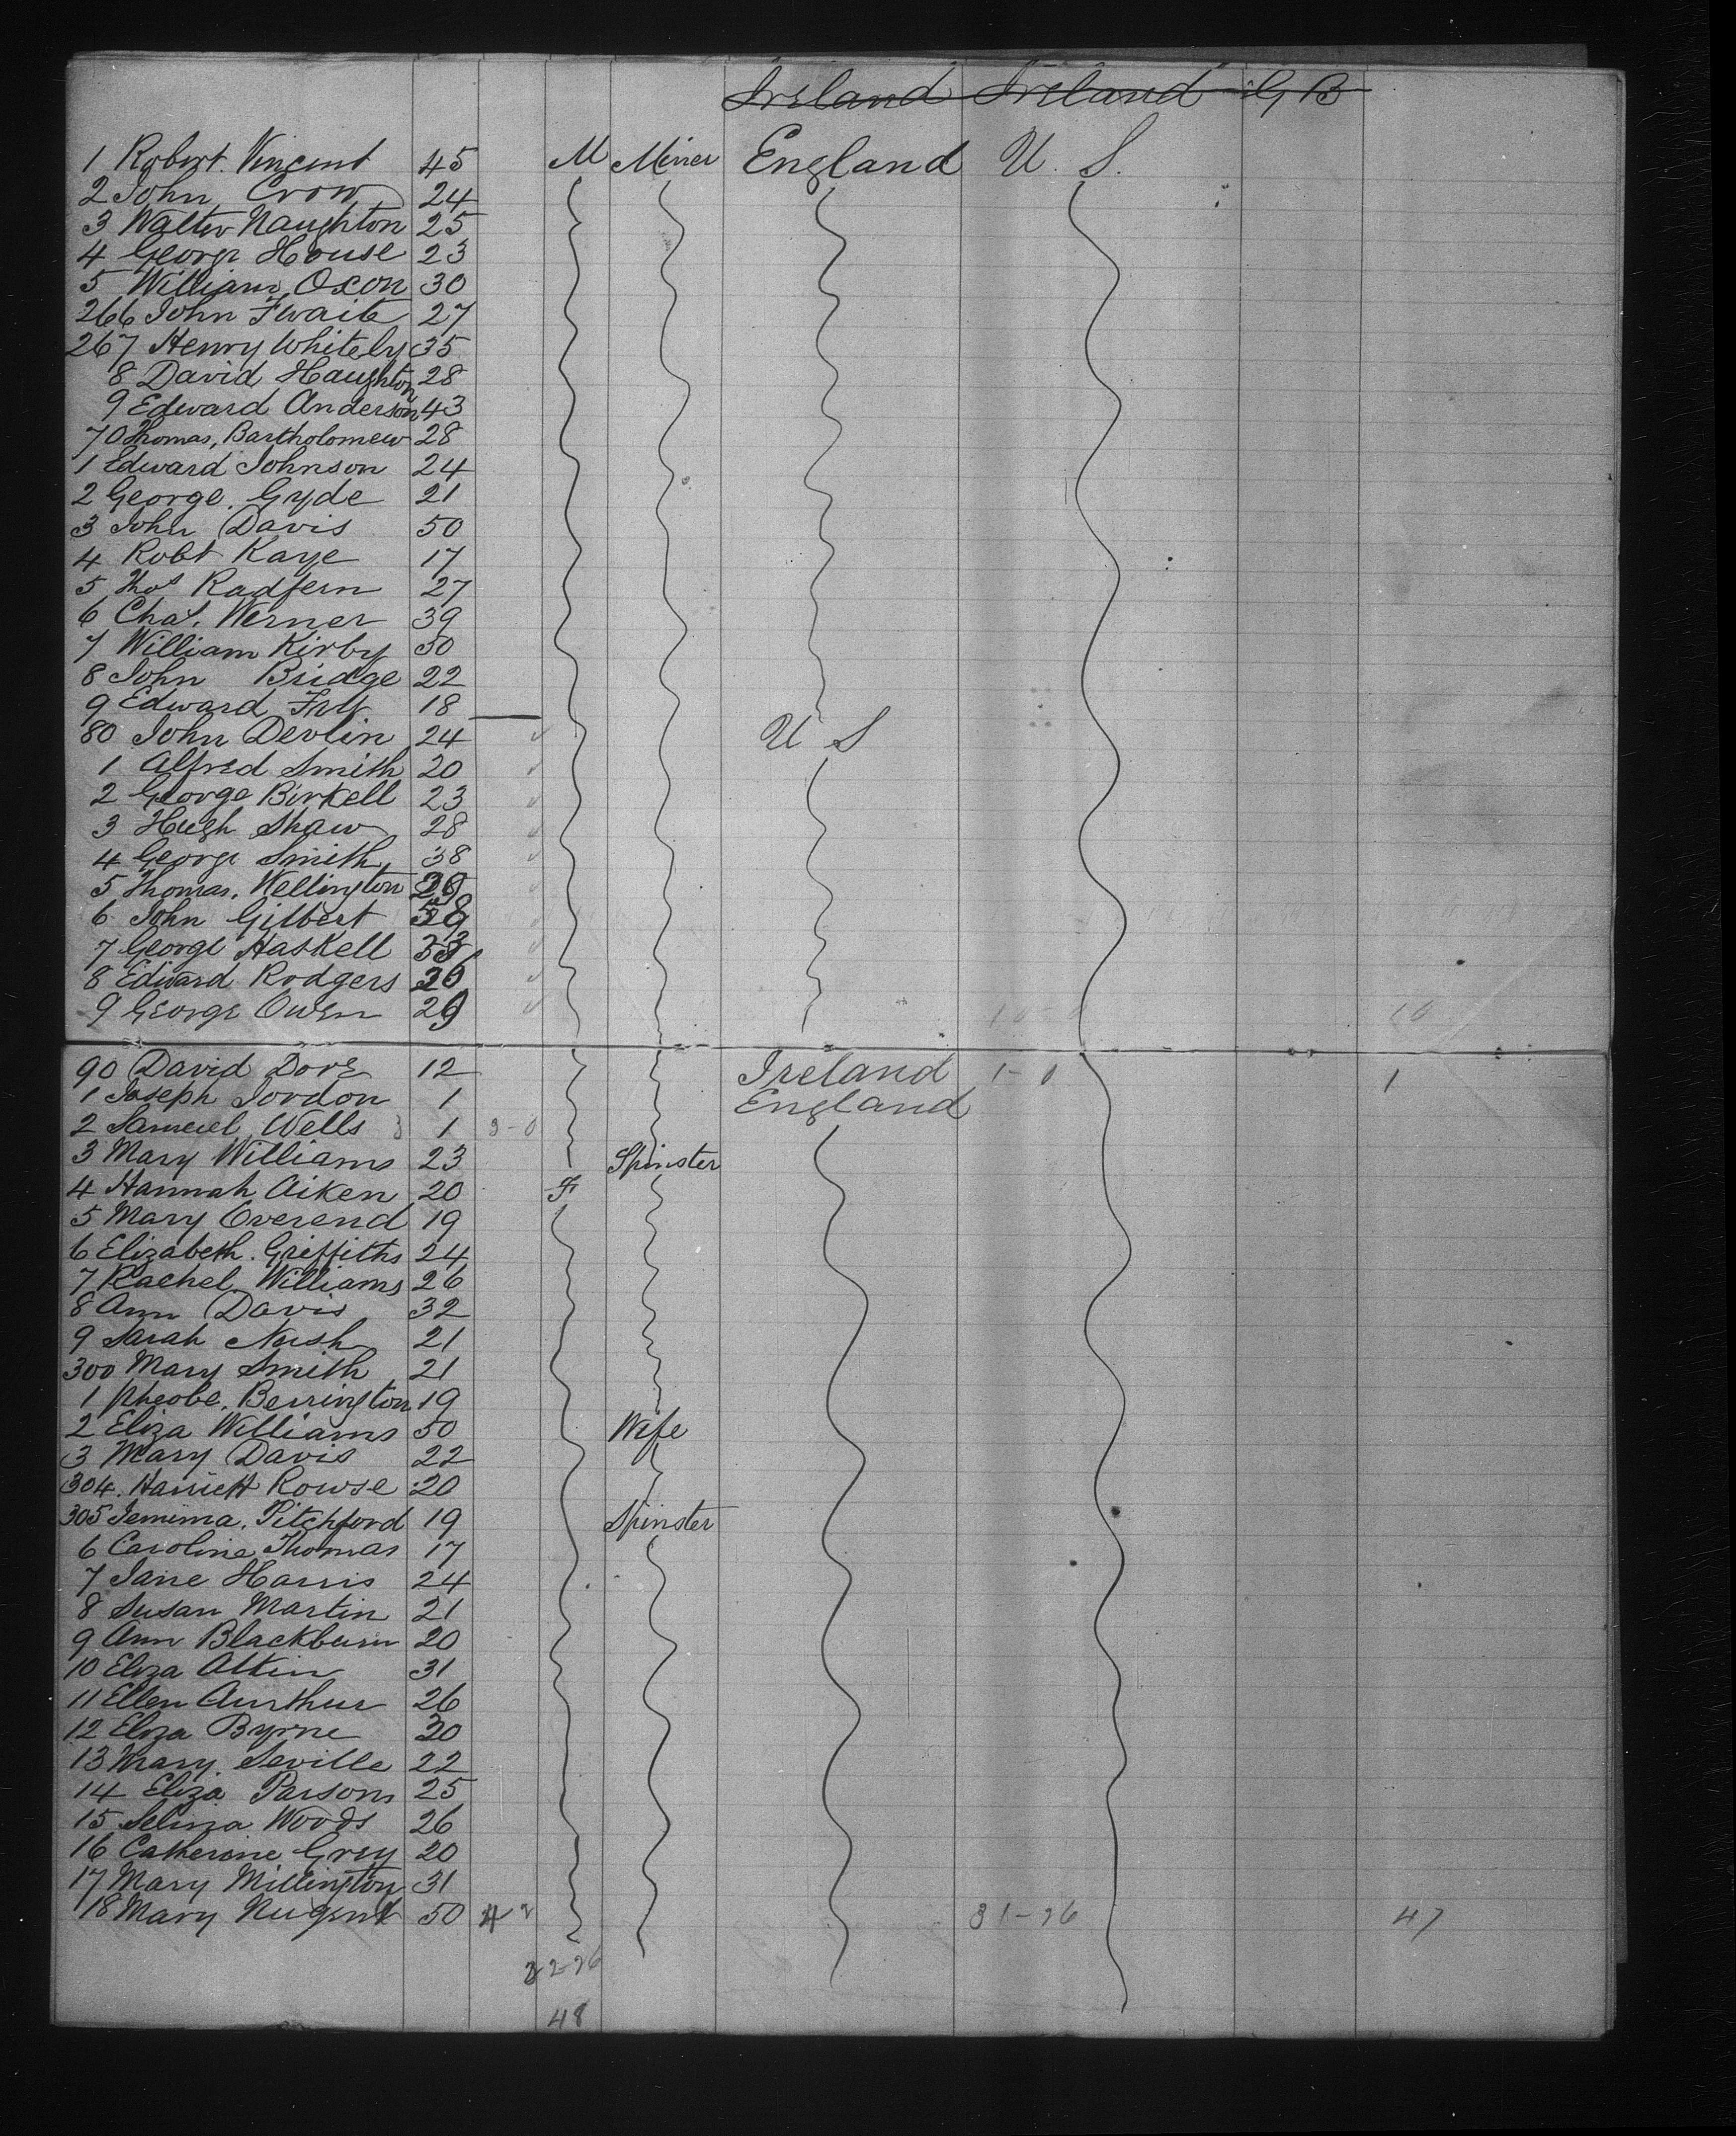 Ireland Ireland G B
1 Robert Vincent 45 M Miner England U. S.
2 John Crow 24
3 Walter Naughton 25
4 George House 23
5 William Oxon 30
266 John Fwaite 27
267 Henry Whitely 35
8 David Haughton 28
9 Edward Anderson 43
70 Thomas, Bartholomew 28
1 Edward Johnson 24
2 George. Gyde 21
3 John Davis 50
4 Robt Kaye 17
5 Thos Radfern 27
6 Chas. Werner 39
7 William Kirby 30
8 John Bridge 22
9 Edward 18
80 John Devlin 24 U S
1 Alfred Smith 20
2 George Birkell 23
3 Hugh Shaw 28
4 George Smith 38
5 Thomas. Wellington
6 John Gilbert
7 George Haskell
8 Edward Rodgers 36
9 George Owen 29 10
90 David Dore 12 Ireland 1-0 1
1 Joseph Jordon 1 England
2 Samuel Wells 1 3-0
3 Mary Williams 23 Spinster
4 Hannah Aiken 20 F
5 Mary Overend 19
6 Elizabeth. Griffiths 24
7 Rachel Williams 26
8 Ann Davis 32
9 Sarah Nash 21
300 Mary Smith 21
1 Pheobe. Berrington 19
2 Eliza Williams 50 Wife
3 Mary Davis 22
304. Harriett Rowse 20
305 Jemima. Pitchford 19 Spinster
6 Caroline Thomas 17
7 Jane Harris 24
8 Susan Martin 21
9 Ann Blackburn 20
10 Eliza Atkin 31
11 Ellen Aurthur 26
12 Eliza Byrne 30
13 Mary. Seville 22
14 Eliza Parsons 25
15 Selina Woods 26
16 Catherine Grey 20
17 Mary Millington 31
18 Mary Nugent 50 4 2 31-26 47
22-26
48